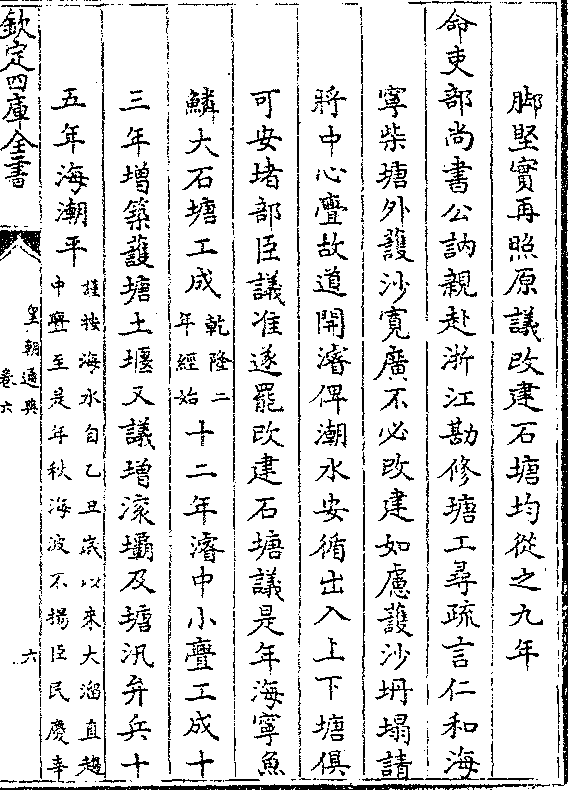 腳堅實再照原議改建石塘均從之九年
命吏部尚書公訥親赴浙江勘修塘工尋疏言仁和海
寧柴塘外䕶沙寬廣不必改建如慮䕶沙坍塌請
將中小亹故道開濬俾潮水安循出入上下塘俱
可安堵部臣議准遂罷改建石塘議是年海寧魚
鱗大石塘工成乾隆二年經始十二年濬中小亹工成十
三年增築䕶塘土堰又議增滚壩及塘汛弁兵十
五年海潮平謹按海水自乙丑歲以來大溜直趨中亹至是年秋海波不揚臣民慶幸
欽定四庫全書
皇朝通典
卷六
六